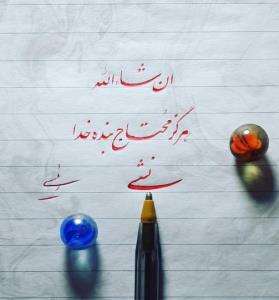 ان شاءالله
هرگز محتاج بنده خدا
نشی